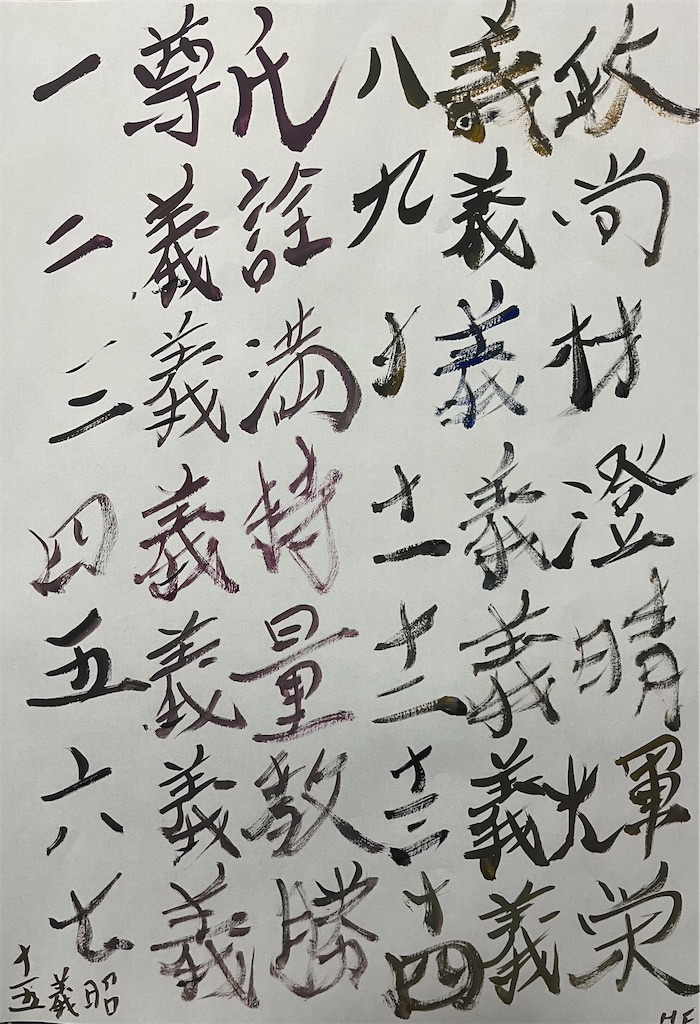 一 尊氏
二 義詮
三 義満
四 義持
五 義量
六 義教
七 義勝
八 義政
九 義尚
十 義材
十一 義澄
十二 義晴
十三 義輝
十四 義栄
十五 義昭